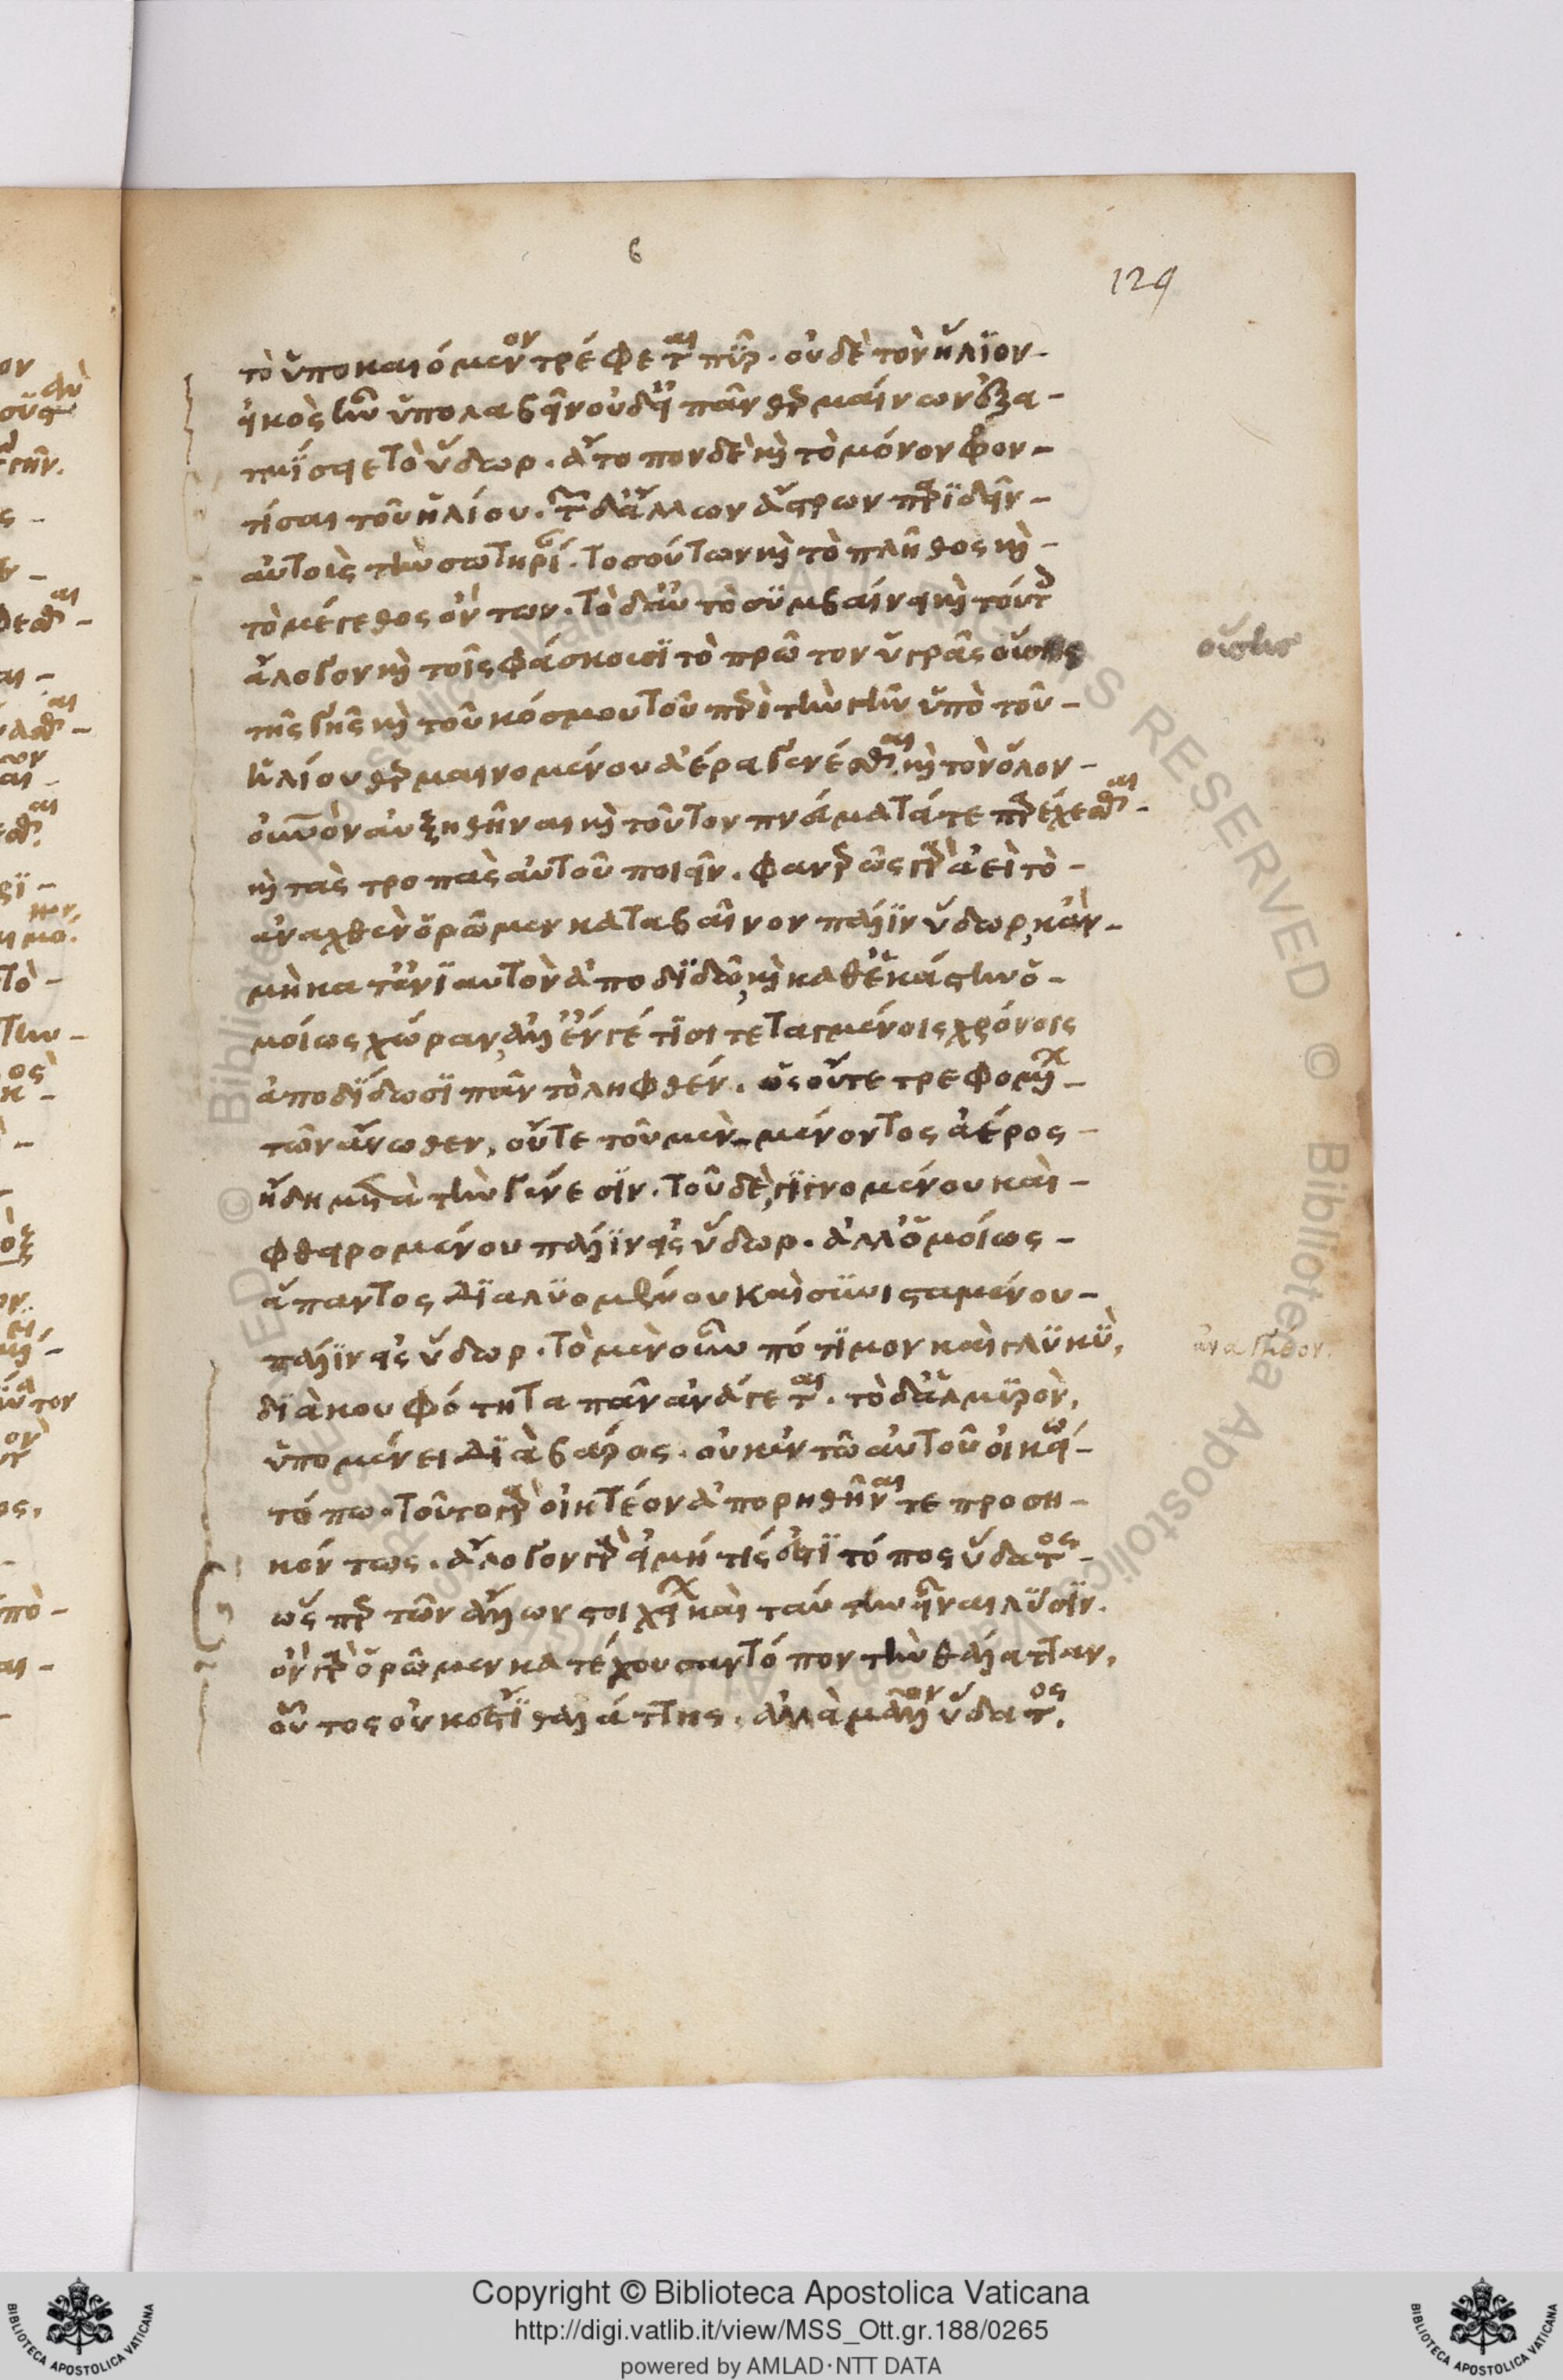 β
129
τὸ ὑποκαιόμενον τρέφεται πῦρ. οὐδὲ τὸν ἥλιον
εἰκὸς ἦν ὑπολαβεῖν οὐδ' εἰ πᾶν θερμαίνων ἐξα-
τμίσειε τὸ ὕδωρ. ἄτοπον δὲ καὶ τὸ μόνον φρον-
τίσαι τοῦ ἡλίου. τῶν δ' ἄλλων ἄστρων παριδεῖν
αὐτοὶς τὴν σωτηρί. τοσούτων καὶ τὸ πλῆθος καὶ
τὸ μέγεθος ὄντων. τὸ δ' αὐτὸ συμβαίνει καὶ τούτοις
ἄλογον καὶ τοῖς φάσκουσι τὸ πρῶτον ὑγρᾶς οὔσης
οὔσης
τῆς γῆς καὶ τοῦ κόσμου τοῦ περὶ τὴν γῆν ὑπὸ τοῦ
ἡλίου θερμαινομένου ἀέρα γενέσθαι καὶ τὸν ὅλον
οὐνὸν αὐξηθῆναι καὶ τοῦτον πνεύματά τε παρέχεσθαι
καὶ τὰς τροπὰς αὐτοῦ ποιεῖν. φανερῶς γὰρ ἀεὶ τὸ
ἀναχθὲν ὁρῶμεν καταβαῖνον πάλιν ὕδωρ, κἂν
μὴ κατ' ἐνιαυτὸν ἀποδιδῶ, καὶ καθ' ἑκάστην ὁ-
μοίως χώραν, ἀλλ' ἔν γέ τισι τεταγμένοις χρόνοις
ἀποδίδωσι πᾶν τὸ ληφθέν. ὡς οὔτε τρεφομένων
τῶν ἄνωθεν, οὔτε τοῦ μὲν μένοντος ἀέρος
ἤδη μετὰ τὴν γένεσιν. τοῦ δὲ, γιγνομένου καὶ
φθειρομένου πάλιν εἰς ὕδωρ. ἀλλ' ὁμοίως
ἅπαντος διαλυομένου καὶ συνισταμένου
πάλιν εἰς ὕδωρ. τὸ μὲν οὖν πότιμον καὶ γλυκὺ,
διὰ κουφότητα πᾶν ἀνάγεται. τὸ δ' ἁλμυρὸν,
ὑπομένει διὰ βάρος. οὐκ ἐν τῶ αὐτοῦ οἰκείω
τόπω. τοῦτο γὰρ οἰητέον ἀπορηθῆναί τε προση-
κόντως. ἄλογον γὰρ εἰ μή τίς ἐστι τόπος ὕδατος
ὡς περ τῶν ἄλλων στοιχείων καὶ ταύτην εἶναι λύσιν.
ὃν γὰρ ὁρῶμεν κατέχουσαν τόπον τὴν θάλατταν,
οὗτος οὐκ ἔστι θαλάττης. ἀλλὰ μᾶλλον ὕδατος.